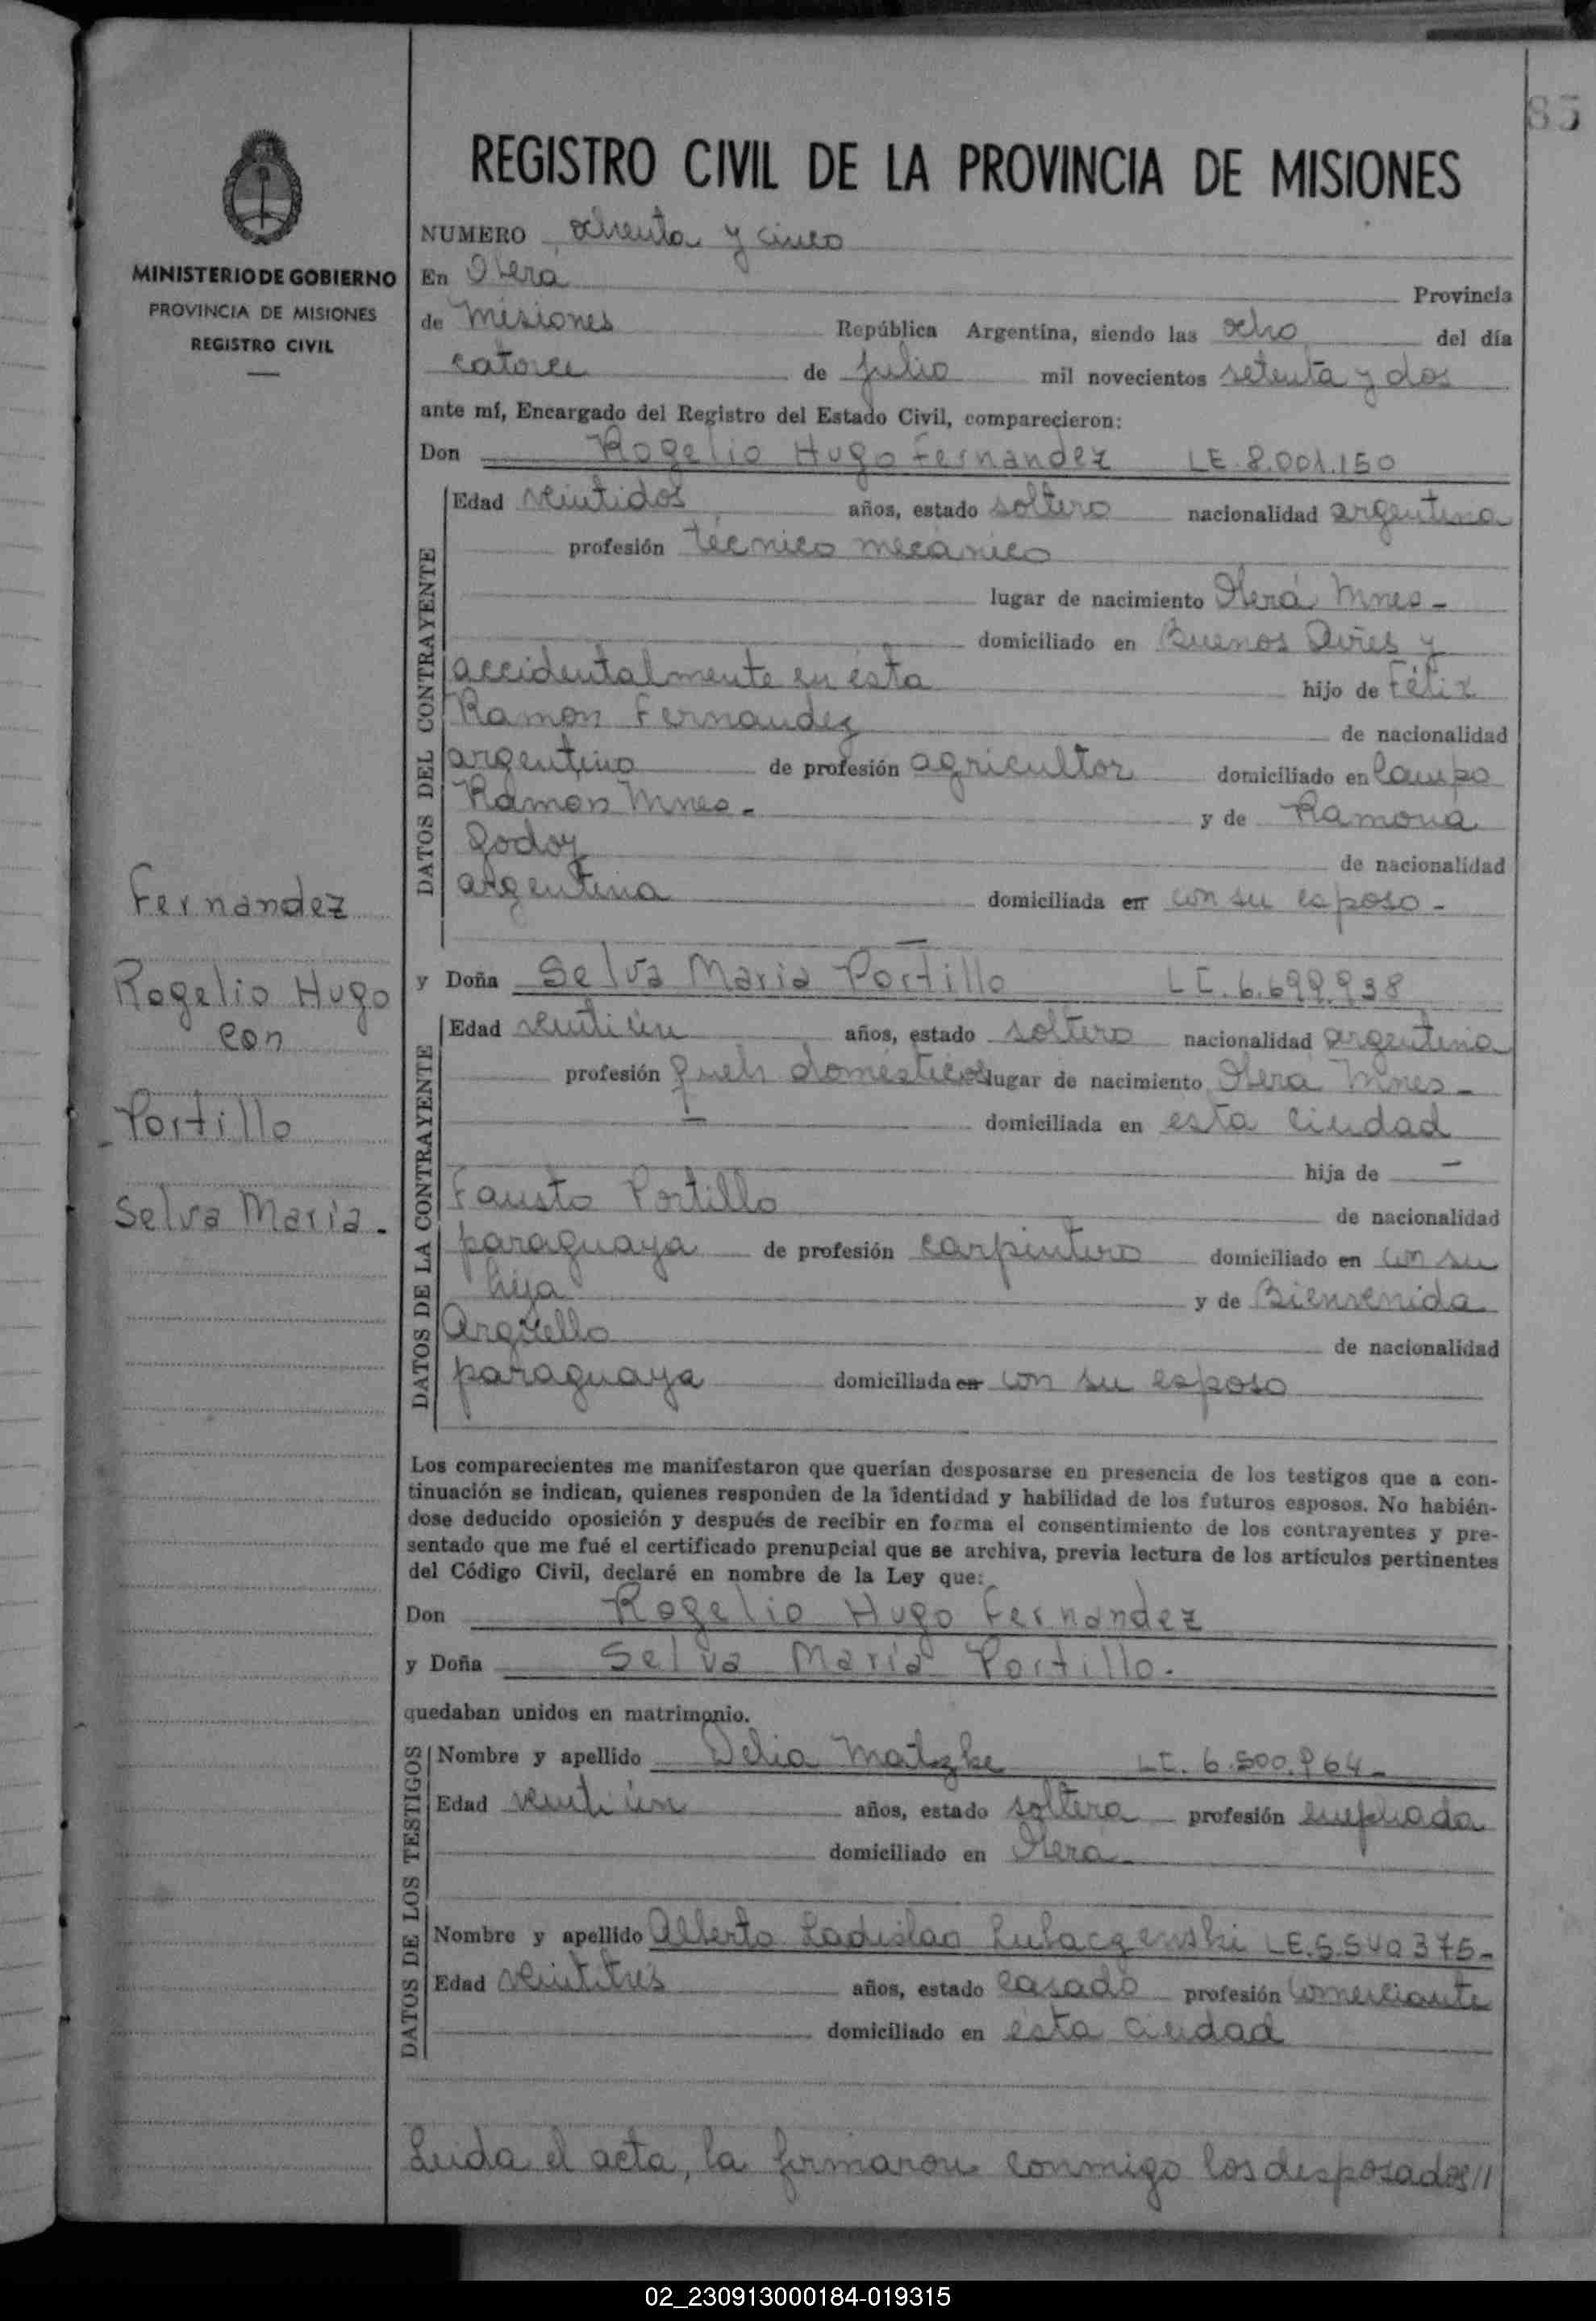 85
REGISTRO CIVIL DE LA PROVINCIA DE MISIONES
MINISTERIO DE GOBIERNO
PROVINCIA DE MISIONES
REGISTRO CIVIL
Fernandez
Rogelio Hugo
con
Portillo
Selva Maria.
NUMERO ochenta y cinco
En Oberá Provincia
de Misiones República Argentina, siendo las ocho del día
catorce de julio mil novecientos setenta y dos
ante mí, Encargado del Registro del Estado Civil, comparecieron:
Don Rogelio Hugo Fernandez LE. 8.001.150
DATOS DEL CONTRAYENTE
Edad veintidos años, estado soltero nacionalidad argentina
profesión técnico mecánico
lugar de nacimiento Oberá Mnes-
domiciliado en Buenos Aires y
accidentalmente en ésta hijo de Félix
Ramon Fernandez de nacionalidad
argentino de profesión agricultor domiciliado en Campo
Ramon Mnes- y de Ramona
Godoy de nacionalidad
argentina domiciliada en con su esposo-
y Doña Selva Maria Portillo LC. 6.699.938
DATOS DE LA CONTRAYENTE
Edad veintiún años, estado soltero nacionalidad argentina
profesión domésticos lugar de nacimiento Oberá Mnes-
domiciliada en esta ciudad
hija de -
Fausto Portillo de nacionalidad
paraguaya de profesión carpintero domiciliado en con su
hija y de Bienvenida
Argüello de nacionalidad
paraguaya domiciliada en con su esposo
Los comparecientes me manifestaron que querían desposarse en presencia de los testigos que a con-
tinuación se indican, quienes responden de la identidad y habilidad de los futuros esposos. No habién-
dose deducido oposición y después de recibir en forma el consentimiento de los contrayentes y pre-
sentado que me fué el certificado prenupcial que se archiva, previa lectura de los artículos pertinentes
del Código Civil, declaré en nombre de la Ley que:
Don Rogelio Hugo Fernandez
y Doña Selva Maria Portillo.
quedaban unidos en matrimonio.
DATOS DE LOS TESTIGOS
Nombre y apellido Delia Matzke LC. 6.500.964-
Edad veintiún años, estado soltera profesión empleada
domiciliado en Oberá
Nombre y apellido Alberto Ladislao LE.
Edad veintitrés años, estado casado profesión comerciante
domiciliado en ésta ciudad
Leida el acta, la firmaron conmigo los desposados//
02_230913000184-019315